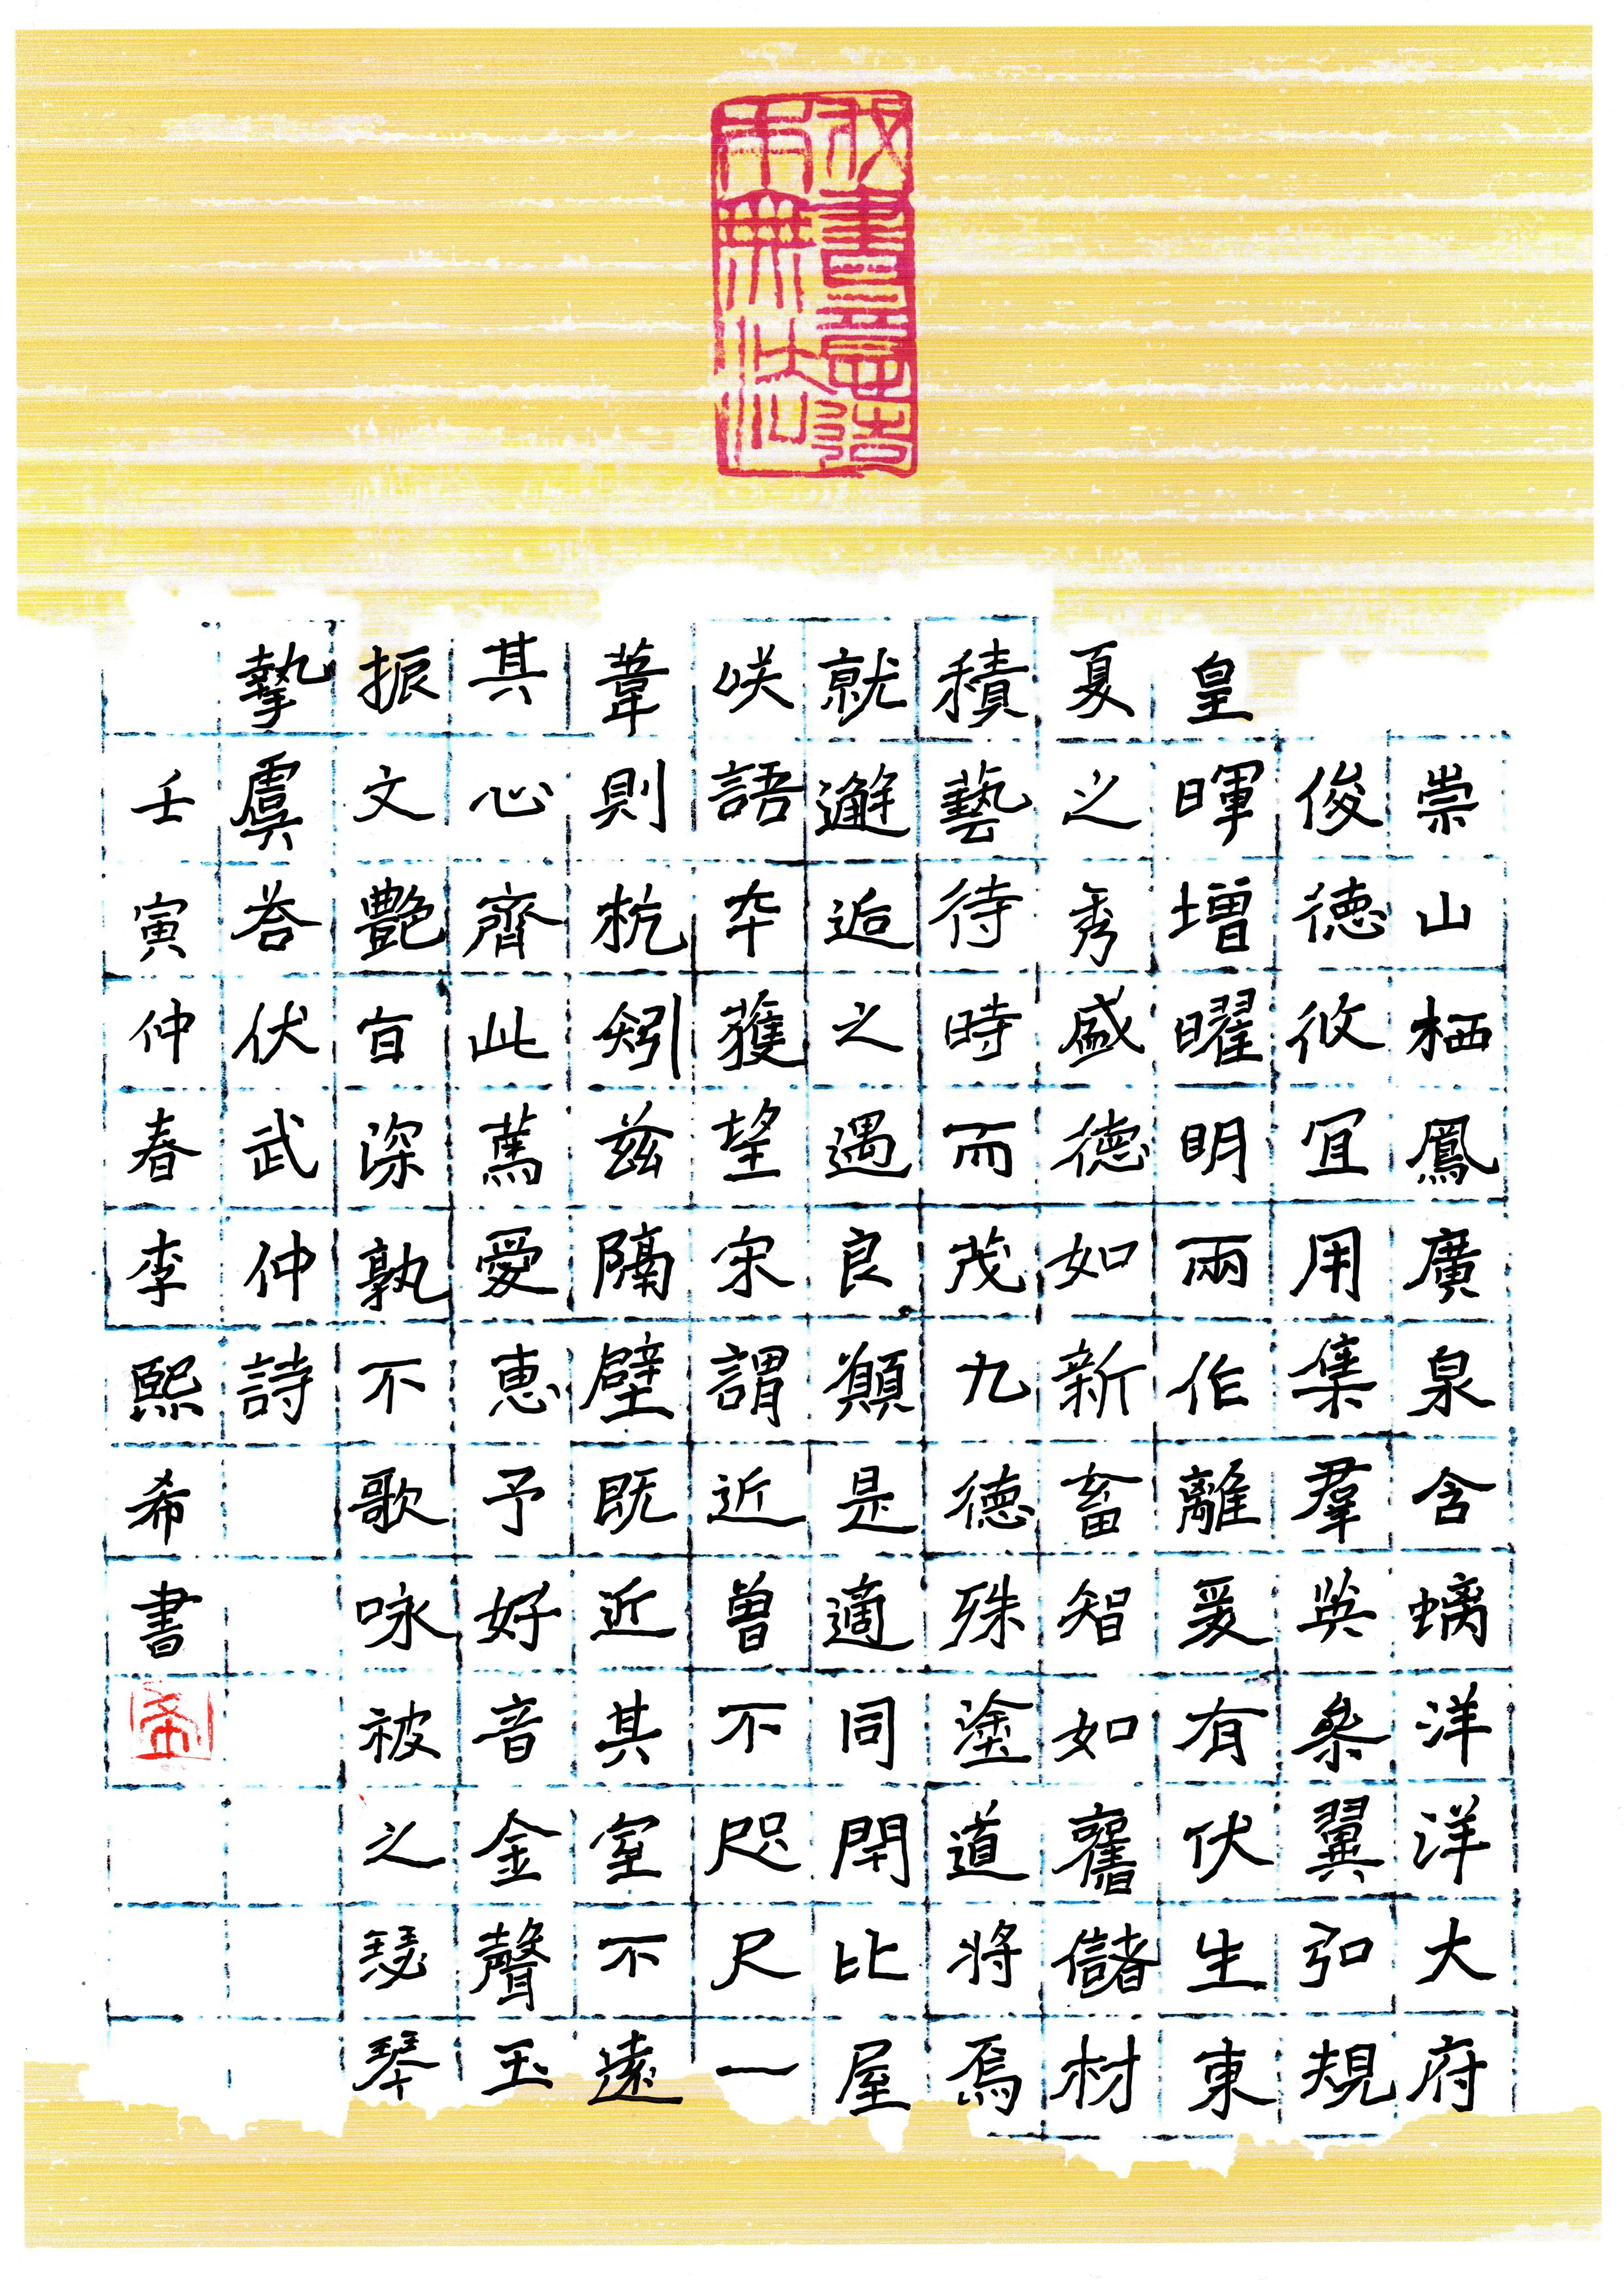 我書意造
本無法
崇山栖鳳廣泉含螭洋洋大府
俊德攸宜用集羣英參翼弘規
皇暉增曜明兩作離爰有伏生東
夏之秀盛德如新畜智如舊儲材
積藝待時而茂九德殊塗道將焉
就邂逅之遇良願是適同閈比屋
咲語卒獲望宋謂近曾不咫尺一
葦則杭矧茲隔壁既近其室不遠
其心齊此篤愛惠予好音金聲玉
振文艷旨深孰不歌咏被之瑟琴
摯虞荅伏武仲詩
壬寅仲春李熙希書